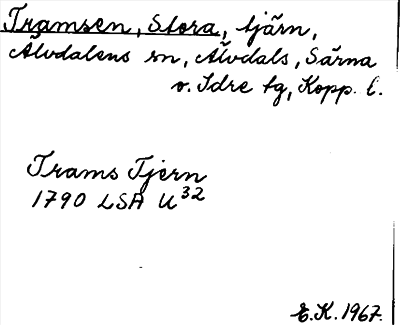 Tramsen, Stora, tjärn,
Älvdalens sn, Älvdals, Särna
o. Idre tg, Kopp. l.
Trams Tjern
1790 LSA U³²
E.K. 1967.